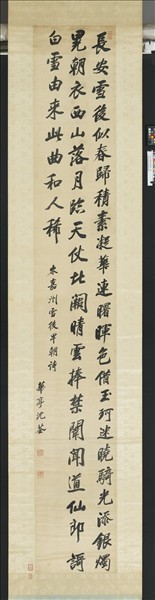 長安雪後似春歸積素凝華連曙暉色借玉珂迷曉騎光添銀燭
晃朝衣西山落月臨天仗北闕晴雲捧禁闈聞道仙郎謌
白雪由來此曲和人稀
岑嘉州雪後早朝詩
華亭沈荃